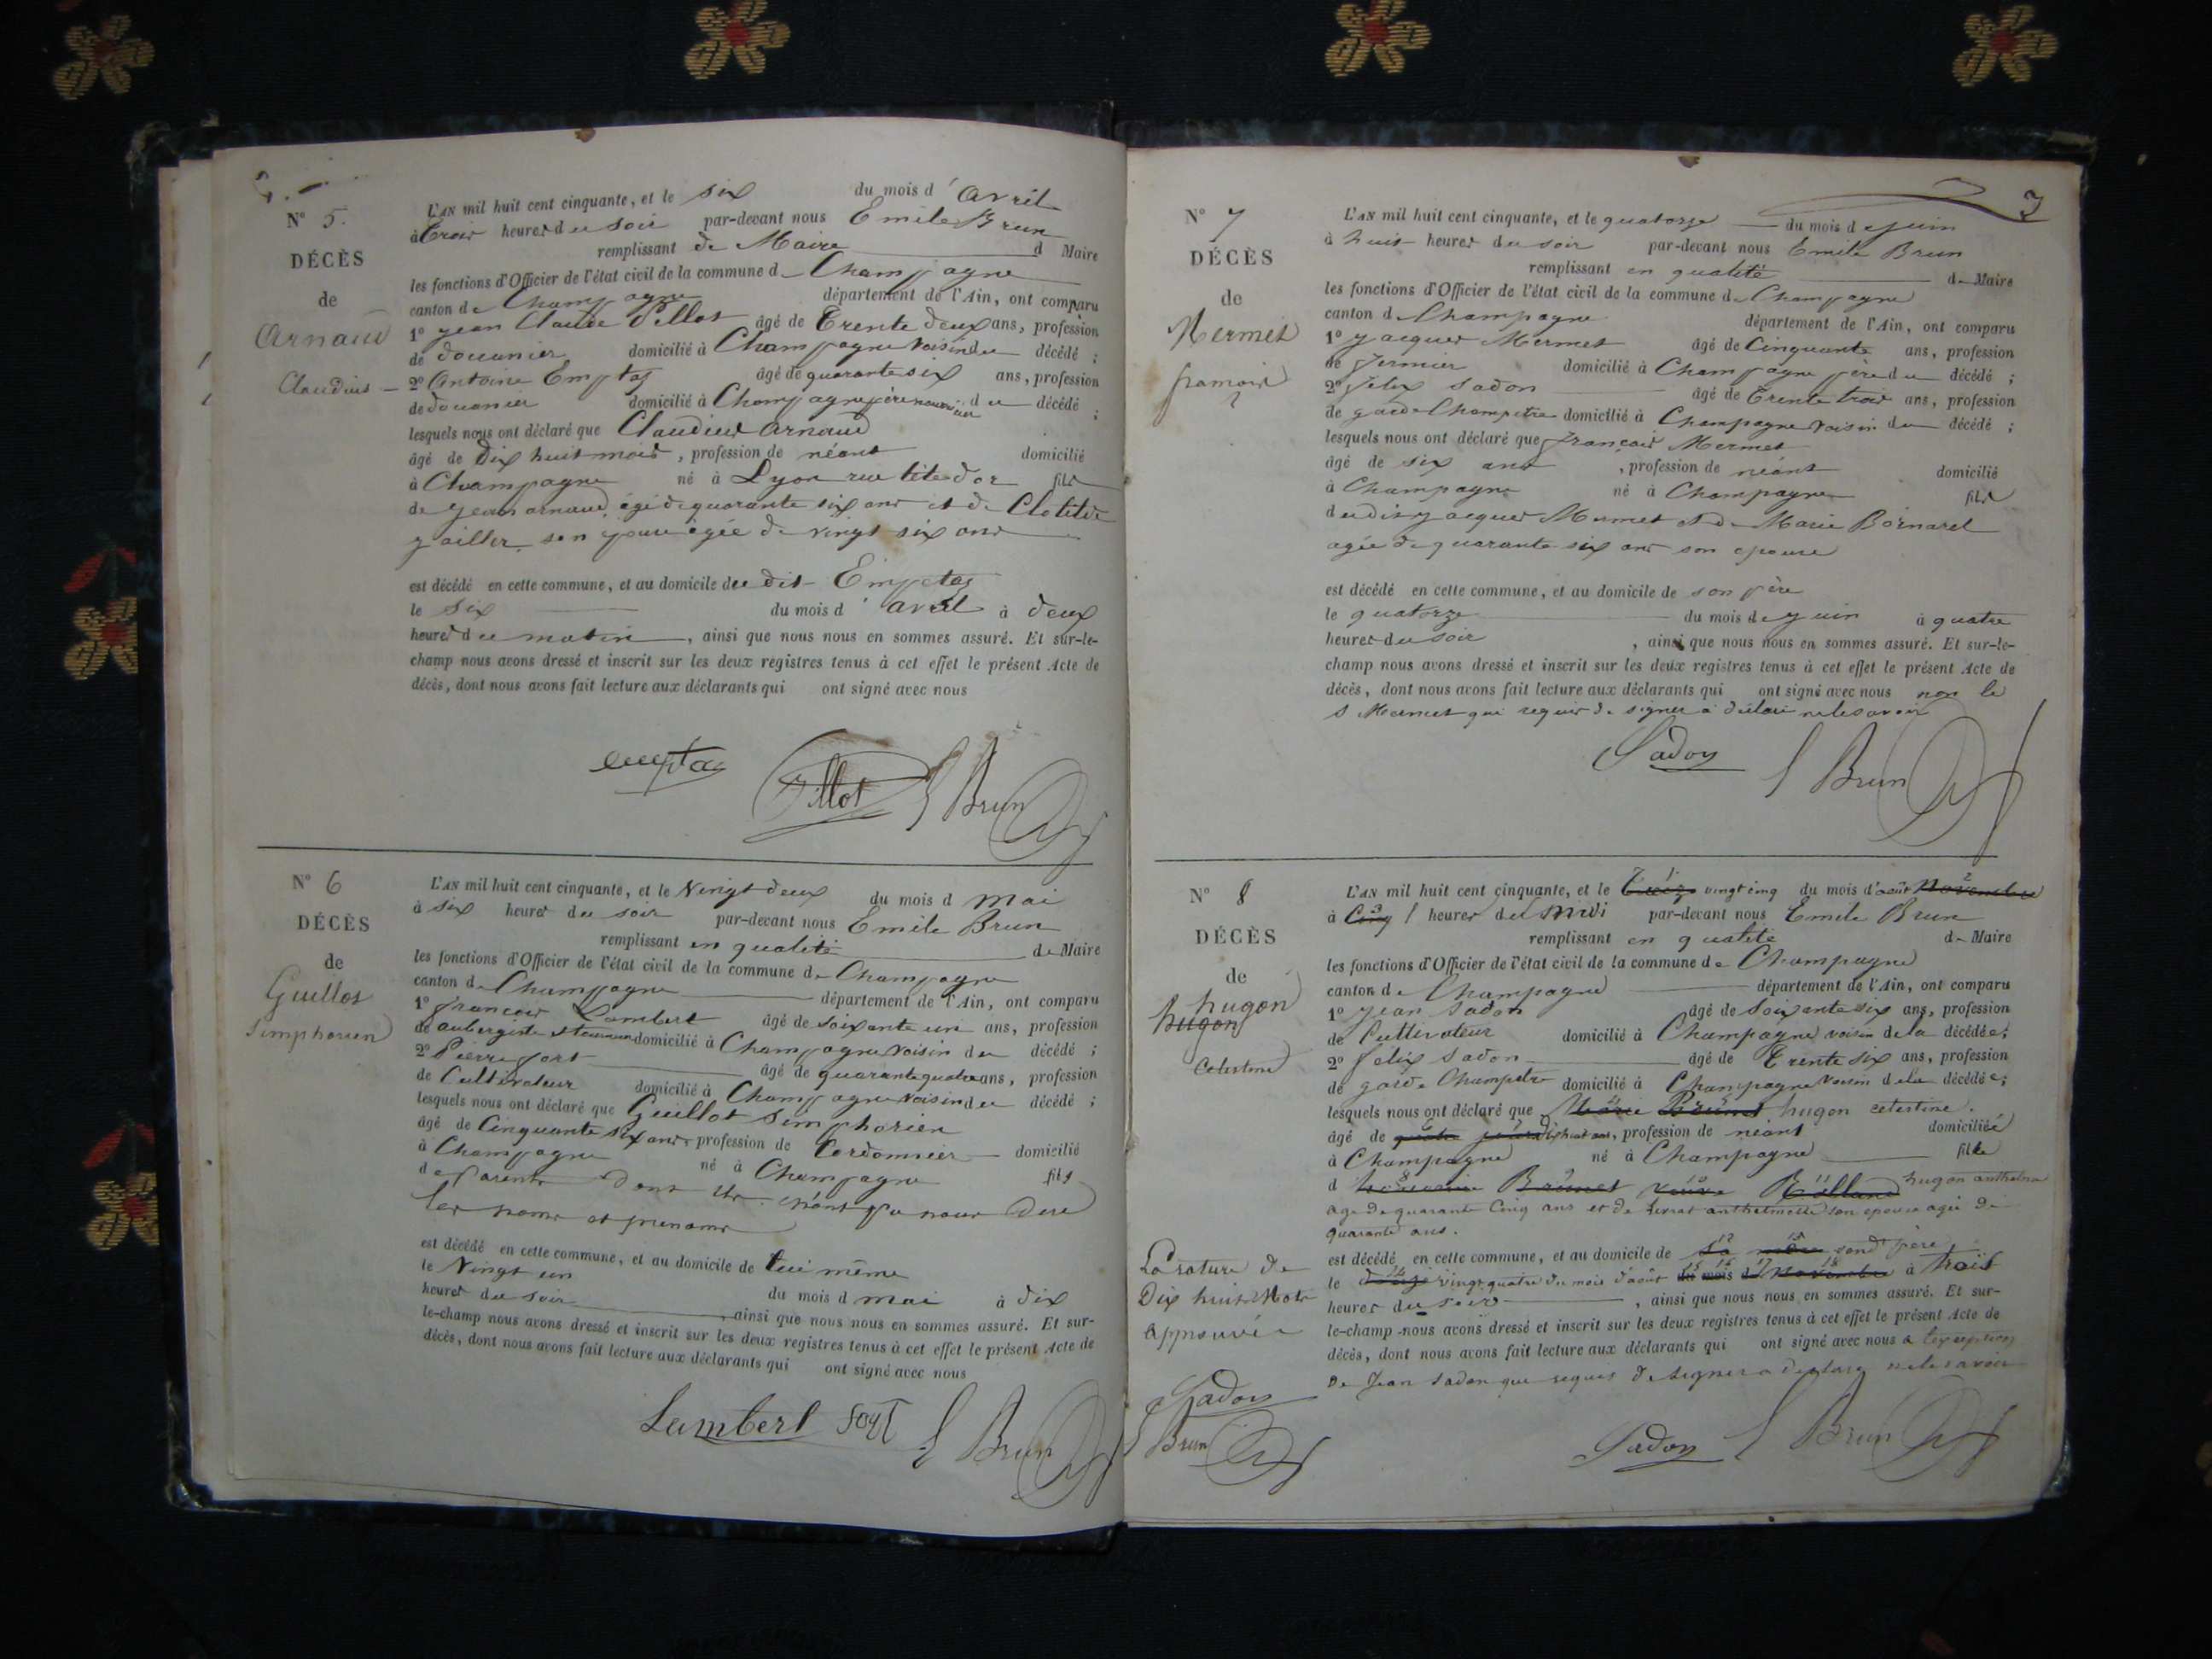 N° 5.
DÉCÈS
de
Arnaud
Claudius
L'AN mil huit cent cinquante, et le six du mois d'avril
à trois heures du soir par-devant nous Emile Brun
remplissant de Maire d Maire
les fonctions d'Officier de l'état civil de la commune de Champagne
canton de Champagne département de l'Ain, ont comparu
1° jean Claude Pillot âgé de trente deux ans, profession
de douanier domicilié à Champagne voisin du décédé ;
2° Antoine Emptaz âgé de quarante six ans, profession
de douanier domicilié à Champagne père nourricier du décédé ;
lesquels nous ont déclaré que Claudius arnaud
âgé de dix huit mois, profession de néant domicilié
à Champagne né à Lyon rue tête d'or fils
de jean arnaud, âgé de quarante six ans et de Clotilde
son épouse âgée de vingt six ans
est décédé en cette commune, et au domicile du dit Emptaz
le six du mois d'avril à deux
heures du matin, ainsi que nous nous en sommes assuré. Et sur-le-
champ nous avons dressé et inscrit sur les deux registres tenus à cet effet le présent Acte de
décès, dont nous avons fait lecture aux déclarants qui ont signé avec nous
emptaz Pillot E Brun
N° 6
DÉCÈS
de
Guillot
Simphorien
L'AN mil huit cent cinquante, et le vingt deux du mois d mai
à six heures du soir par-devant nous Emile Brun
remplissant en qualité de Maire
les fonctions d'Officier de l'état civil de la commune de Champagne
canton de Champagne département de l'Ain, ont comparu
1° françois Lambert âgé de soixante un ans, profession
de aubergiste domicilié à Champagne voisin du décédé ;
2° Pierre fort âgé de quarante quatre ans, profession
de Cultivateur domicilié à Champagne voisin du décédé ;
lesquels nous ont déclaré que Guillot Simphorien
âgé de Cinquante six ans, profession de Cordonnier domicilié
à Champagne né à Champagne fils
de Parents dont ils n'ont pu nous dire
les noms et prénoms
est décédé en cette commune, et au domicile de lui même
le vingt un du mois d mai à dix
heures du soir, ainsi que nous nous en sommes assuré. Et sur-
le-champ nous avons dressé et inscrit sur les deux registres tenus à cet effet le présent Acte de
décès, dont nous avons fait lecture aux déclarants qui ont signé avec nous
Lambert fort E Brun
3
N° 7
DÉCÈS
de
Mermet
françois
L'AN mil huit cent cinquante, et le quatorze du mois de juin
à huit heures du soir par-devant nous Emile Brun
remplissant en qualité de Maire
les fonctions d'Officier de l'état civil de la commune de Champagne
canton de Champagne département de l'Ain, ont comparu
1° jacques Mermet âgé de Cinquante ans, profession
de fermier domicilié à Champagne père du décédé ;
2° félix sadon âgé de trente trois ans, profession
de garde Champetre domicilié à Champagne voisin du décédé ;
lesquels nous ont déclaré que françois Mermet
âgé de six ans, profession de néant domicilié
à Champagne né à Champagne fils
du dit jacques Mermet et de Marie
agée de quarante six ans son epouse
est décédé en cette commune, et au domicile de son père
le quatorze du mois de juin à quatre
heures du soir, ainsi que nous nous en sommes assuré. Et sur-le-
champ nous avons dressé et inscrit sur les deux registres tenus à cet effet le présent Acte de
décès, dont nous avons fait lecture aux déclarants qui ont signé avec nous non le
s Mermet qui requis de signer a déclaré ne le savoir
Sadon E Brun
N° 8
DÉCÈS
de
hugon
hugon
Celestine
L'AN mil huit cent cinquante, et le treize vingt cinq du mois d'août Novembre
à Cinq 1 heures du midi par-devant nous Emile Brun
remplissant en qualité de Maire
les fonctions d'Officier de l'état civil de la commune de Champagne
canton de Champagne département de l'Ain, ont comparu
1° jean sadon âgé de soixante six ans, profession
de Cultivateur domicilié à Champagne voisin de la décédée ;
2° félix sadon âgé de trente six ans, profession
de garde Champetre domicilié à Champagne voisin de la décédée ;
lesquels nous ont déclaré que Marie Brunet hugon celestine.
âgé de dix huit ans, profession de néant domiciliée
à Champagne né à Champagne fille
d Brunet veuve Rolland hugon anthelme
age de quarante cinq ans et de anthelmette son epouse agée de
quarante ans.
est décédé en cette commune, et au domicile de sa mère son père
le douze vingt quatre du mois d'août du mois de Novembre à trois
heures du soir, ainsi que nous nous en sommes assuré. Et sur-
le-champ nous avons dressé et inscrit sur les deux registres tenus à cet effet le présent Acte de
décès, dont nous avons fait lecture aux déclarants qui ont signé avec nous a l'exception
de jean sadon que requis de signer a declaré ne le savoir
La rature de
Dix huit Mots
approuvée
Sadon
E Brun
Sadon E Brun